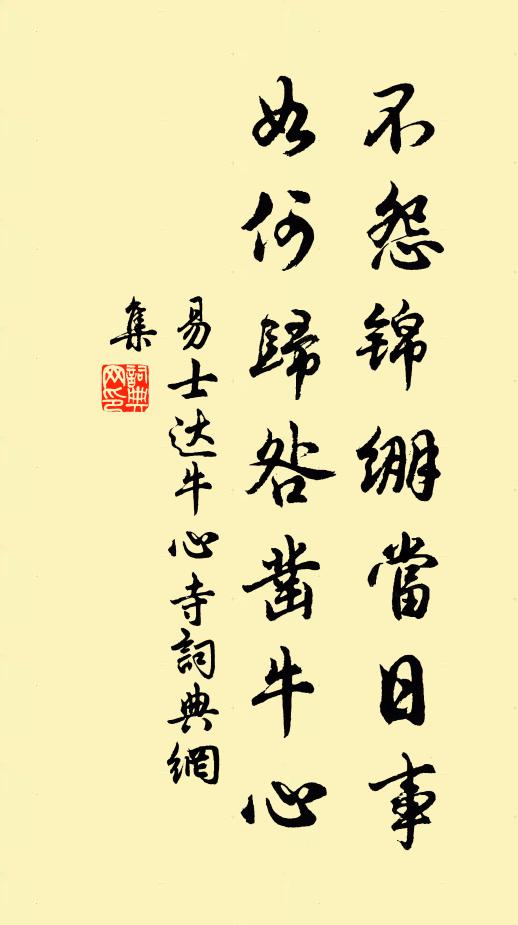 不怨锦绷當日事
如何歸咎凿牛心
易士达牛心寺詞典網
集
詞典网印